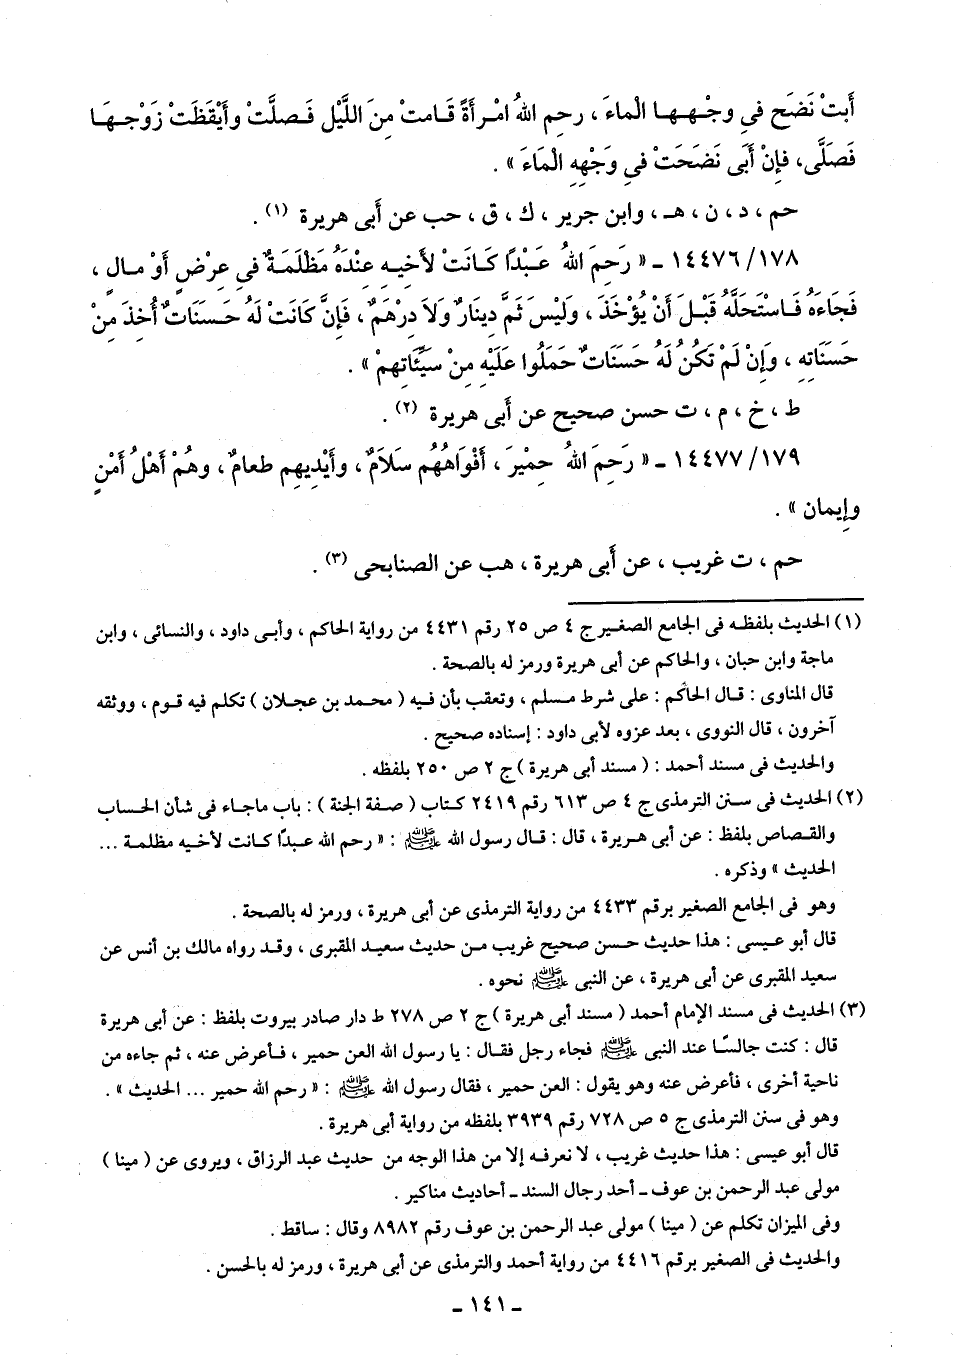 أَبتْ نَضَح فيِ وجْهِهَا الْماءَ ، رحِم اللهُ امْرأَةً قَامتْ مِنَ اللَّيْل فَصلَّتْ وأَيْقَظَتْ زَوْجهَا
فَصَلَّى، فَإِنْ أَبَى نَضَحَتْ فيِ وَجْهِهِ الْمَاءَ » .
حم ، د ، ن ، هـ ، وابن جرير ، ك ، ق ، حب عن أَبى هريرة (١) .
١٤٤٧٦/١٧٨ ـ « رَحِمَ اللهُ عَبْدًا كَانَتْ لأَخِيهِ عِنْدَهُ مَظْلَمَةٌ فيِ عِرْضٍ أَوْ مالٍ ،
فَجَاءَهُ فَاسْتَحَلَّهُ قَبْلَ أَنْ يُؤْخَذَ ، وَلَيْسَ ثَمَّ دِينَارٌ وَلاَ دِرْهَمٌ ، فَإِنْ كَانَتْ لَهُ حَسَنَاتٌ أُخِذَ مِنْ
حَسَنَاتِهِ ، وَإِنْ لَمْ تَكُنُ لَهُ حَسَنَاتٌ حَمَلُوا عَلَيْهِ مِنْ سَيِّئَاتِهِمْ » .
ط ، خ ، م ، ت حسن صحيح عن أَبى هريرة (٢) .
١٤٤٧٧/١٧٩ ـ « رَحِمَ اللهُ حِمْيرَ ، أَفْوَاهُهُم سَلاَمٌ ، وَأَيْدِيهِم طعامٌ ، وهُمْ أَهْلُ أَمْنٍ
وإِيمان » .
حم ، ت غريب ، عن أَبى هريرة ، هب عن الصنابحى (٣) .
(١) الحديث بلفظه فى الجامع الصغير ج ٤ ص ٢٥ رقم ٤٤٣١ من رواية الحاكم ، وأبى داود ، والنسائى ، وابن
ماجة وابن حبان ، والحاكم عن أبى هريرة ورمز له بالصحة .
قال المناوى : قال الحاكم : على شرط مسلم ، وتعقب بأن فيه ( محمد بن عجلان ) تكلم فيه قوم ، ووثقه
آخرون ، قال النووى ، بعد عزوه لأبى داود : إسناده صحيح .
والحديث فى مسند أحمد : ( مسند أبى هريرة ) ج ٢ ص ٢٥٠ بلفظه .
(٢) الحديث فى سنن الترمذى ج ٤ ص ٦١٣ رقم ٢٤١٩ كتاب ( صفة الجنة ) : باب ماجاء فى شأن الحساب
والقصاص بلفظ : عن أبى هريرة ، قال : قال رسول الله ﷺ : « رحم الله عبدًا كانت لأخيه مظلمة ...
الحديث » وذكره .
وهو فى الجامع الصغير برقم ٤٤٣٣ من رواية الترمذى عن أبى هريرة ، ورمز له بالصحة .
قال أبو عيسى : هذا حديث حسن صحيح غريب من حديث سعيد المقبرى ، وقد رواه مالك بن أنس عن
سعيد المقبرى عن أبى هريرة ، عن النبى ﷺ نحوه .
(٣) الحديث فى مسند الإمام أحمد ( مسند أبى هريرة ) ج ٢ ص ٢٧٨ ط دار صادر بيروت بلفظ : عن أبى هريرة
قال : كنت جالسًا عند النبى ﷺ فجاء رجل فقال : يا رسول الله العن حمير ، فأعرض عنه ، ثم جاءه من
ناحية أخرى ، فأعرض عنه وهو يقول : العن حمير ، فقال رسول الله ﷺ : « رحم الله حمير ... الحديث » .
وهو فى سنن الترمذى ج ٥ ص ٧٢٨ رقم ٣٩٣٩ بلفظه من رواية أبى هريرة .
قال أبو عيسى : هذا حديث غريب ، لا نعرفه إلا من هذا الوجه من حديث عبد الرزاق ، ويروى عن ( مينا )
مولى عبد الرحمن بن عوف ـ أحد رجال السند ـ أحاديث مناكير .
وفى الميزان تكلم عن ( مينا ) مولى عبد الرحمن بن عوف رقم ٨٩٨٢ وقال : ساقط .
والحديث فى الصغير برقم ٤٤١٦ من رواية أحمد والترمذى عن أبى هريرة ، ورمز له بالحسن .
ـ ١٤١ ـ